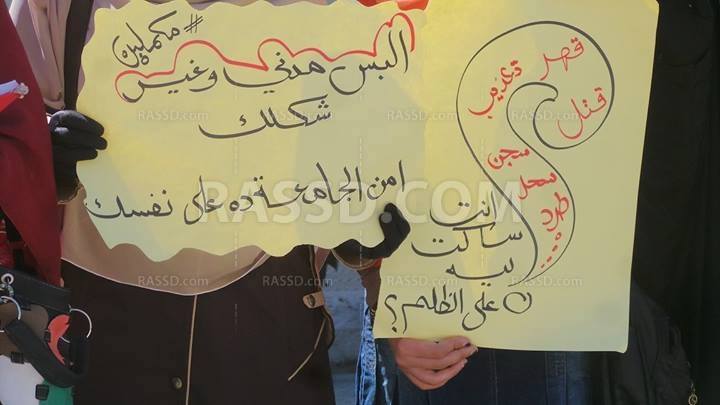 #مكملين
البس مدني وغير
شكلك
امن الجامعة ده على نفسك
قهر
تعذيب
قتل
سجن
سحل
طرد
انت
ساكت
ليه
على الظلم؟
RASSD.COM